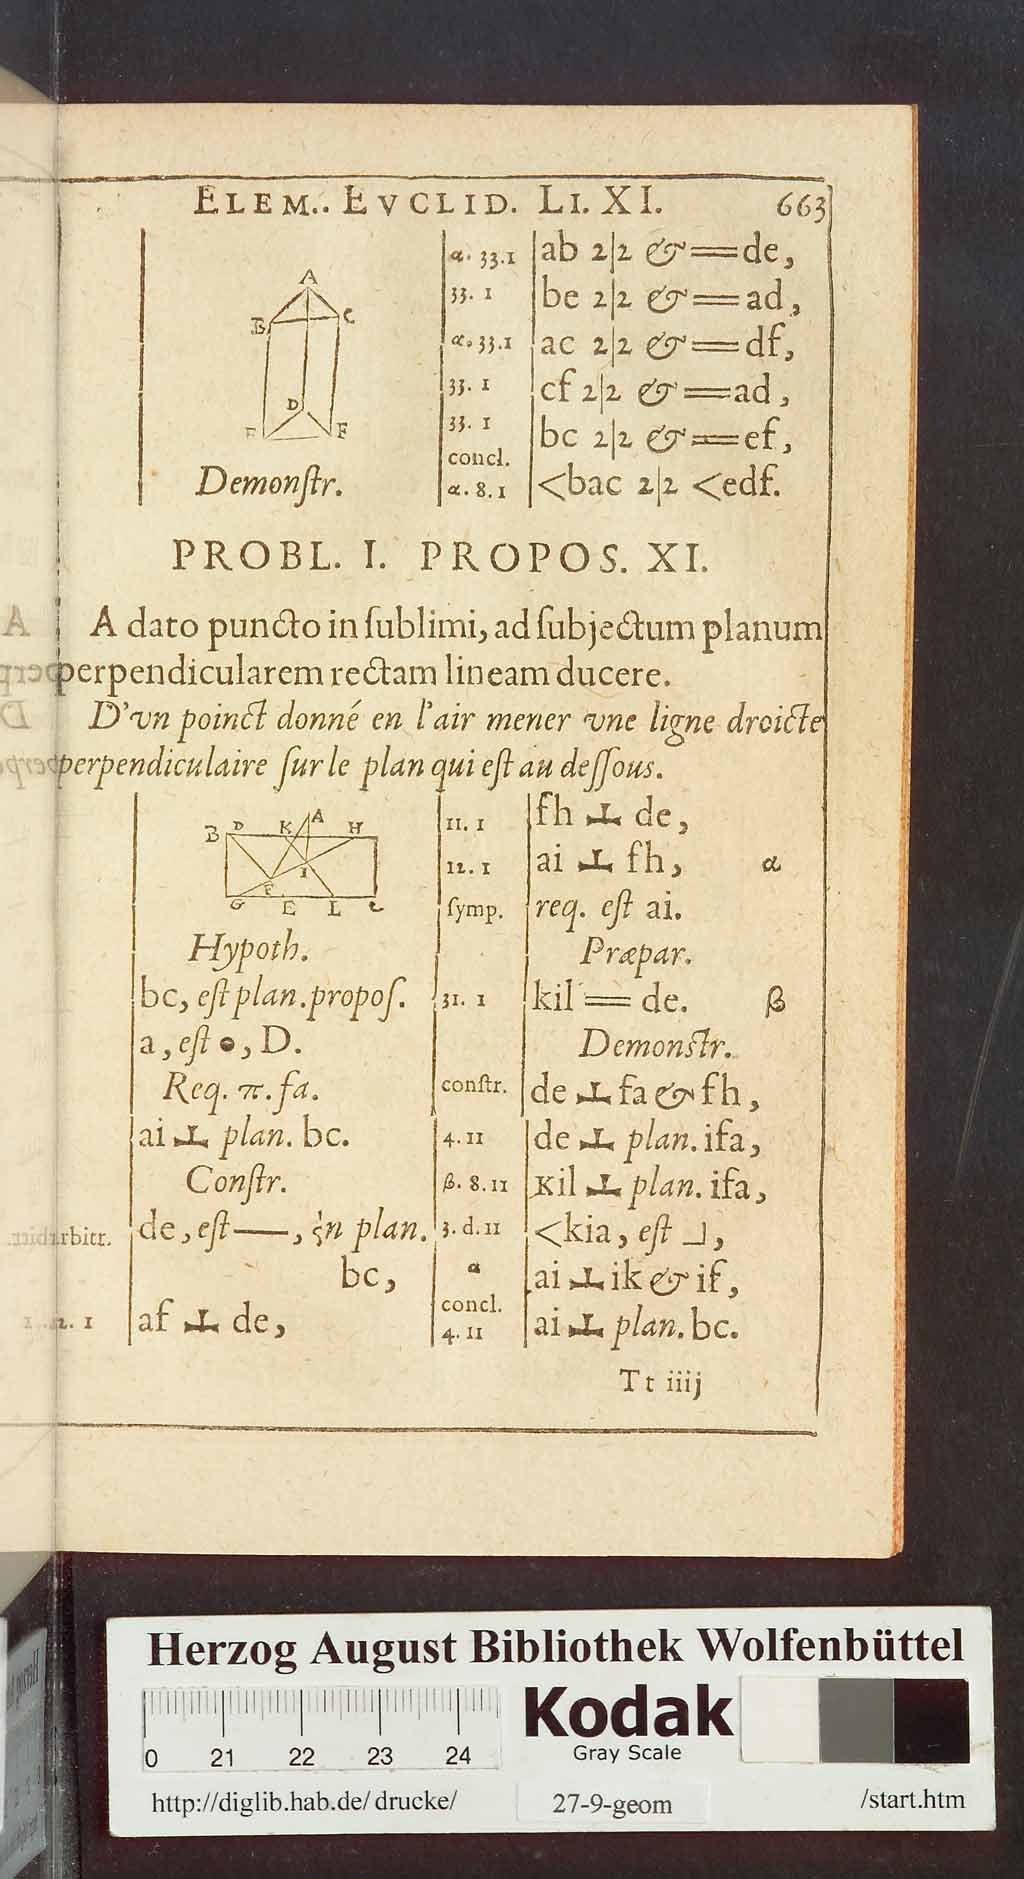 ELEM.. EVCLID. LI. XI. 663
A
B C
D
E F
Demonſtr.
α. 33.1 ab 2|2 & = de,
33. 1 be 2|2 & = ad,
α. 33.1 ac 2|2 & = df,
33. 1 cf 2|2 & = ad,
33. 1 bc 2|2 & = ef,
concl.
α. 8. 1 <bac 2|2 <edf.
PROBL. I. PROPOS. XI.
A dato puncto in ſublimi, ad ſubjectum planum
perpendicularem rectam lineam ducere.
D'vn poinct donné en l'air mener vne ligne droicte
perpendiculaire ſur le plan qui eſt au deſſous.
B D K A H
F I
G E L C
Hypoth.
bc, eſt plan. propoſ.
a, eſt •, D.
Req. π. fa.
ai ⊥ plan. bc.
Conſtr.
arbitr. de, eſt —, in plan.
bc,
12. 1 af ⊥ de,
11. 1 fh ⊥ de,
12. 1 ai ⊥ fh, α
ſymp. req. eſt ai.
Præpar.
31. 1 kil = de. β
Demonſtr.
conſtr. de ⊥ fa & fh,
4. 11 de ⊥ plan. ifa,
β. 8. 11 kil ⊥ plan. ifa,
3. d. 11 <kia, eſt ⅃,
α ai ⊥ ik & if,
concl.
4. 11 ai ⊥ plan. bc.
Tt iiij
Herzog August Bibliothek Wolfenbüttel
0 21 22 23 24
Kodak
Gray Scale
http://diglib.hab.de/ drucke/ 27-9-geom /start.htm